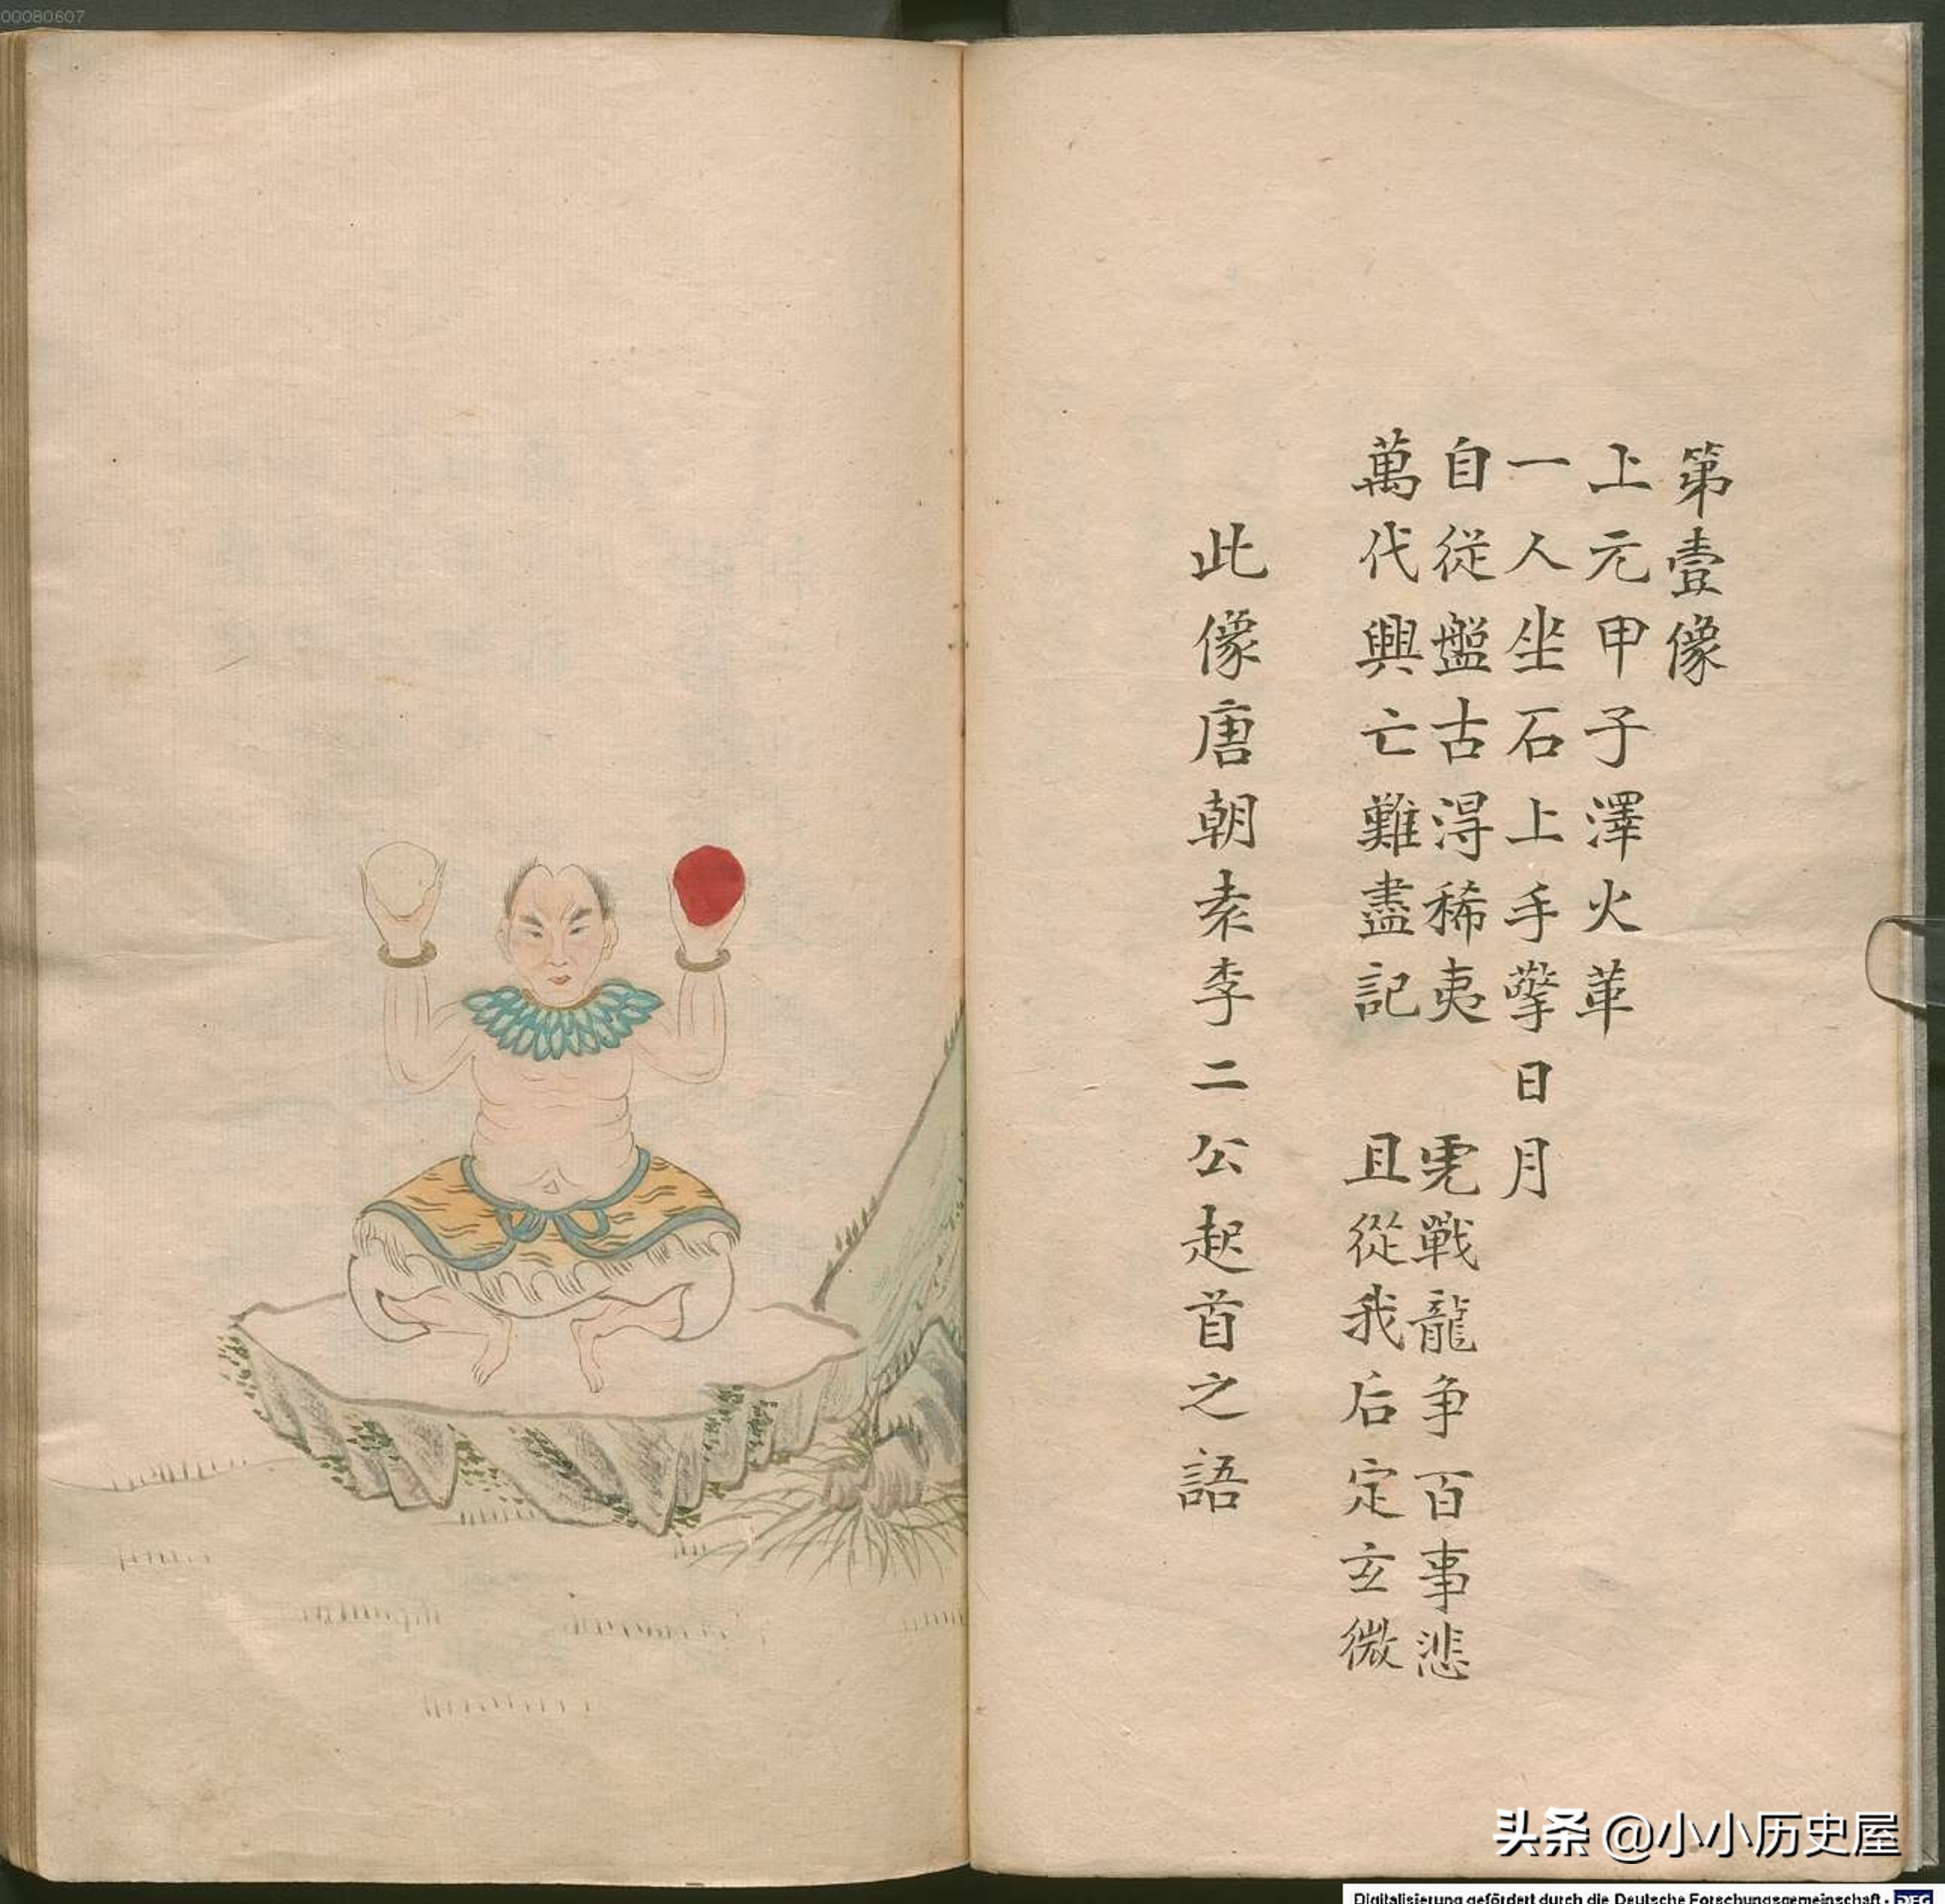 00080607
第壹像
上元甲子澤火革
一人坐石上手擎日月
自從盤古得稀夷 虎戰龍爭百事悲
萬代興亡難盡記 且從我后定玄微
此像唐朝袁李二公起首之語
头条 @小小历史屋
Digitalisierung gefördert durch die Deutsche Forschungsgemeinschaft - DFG